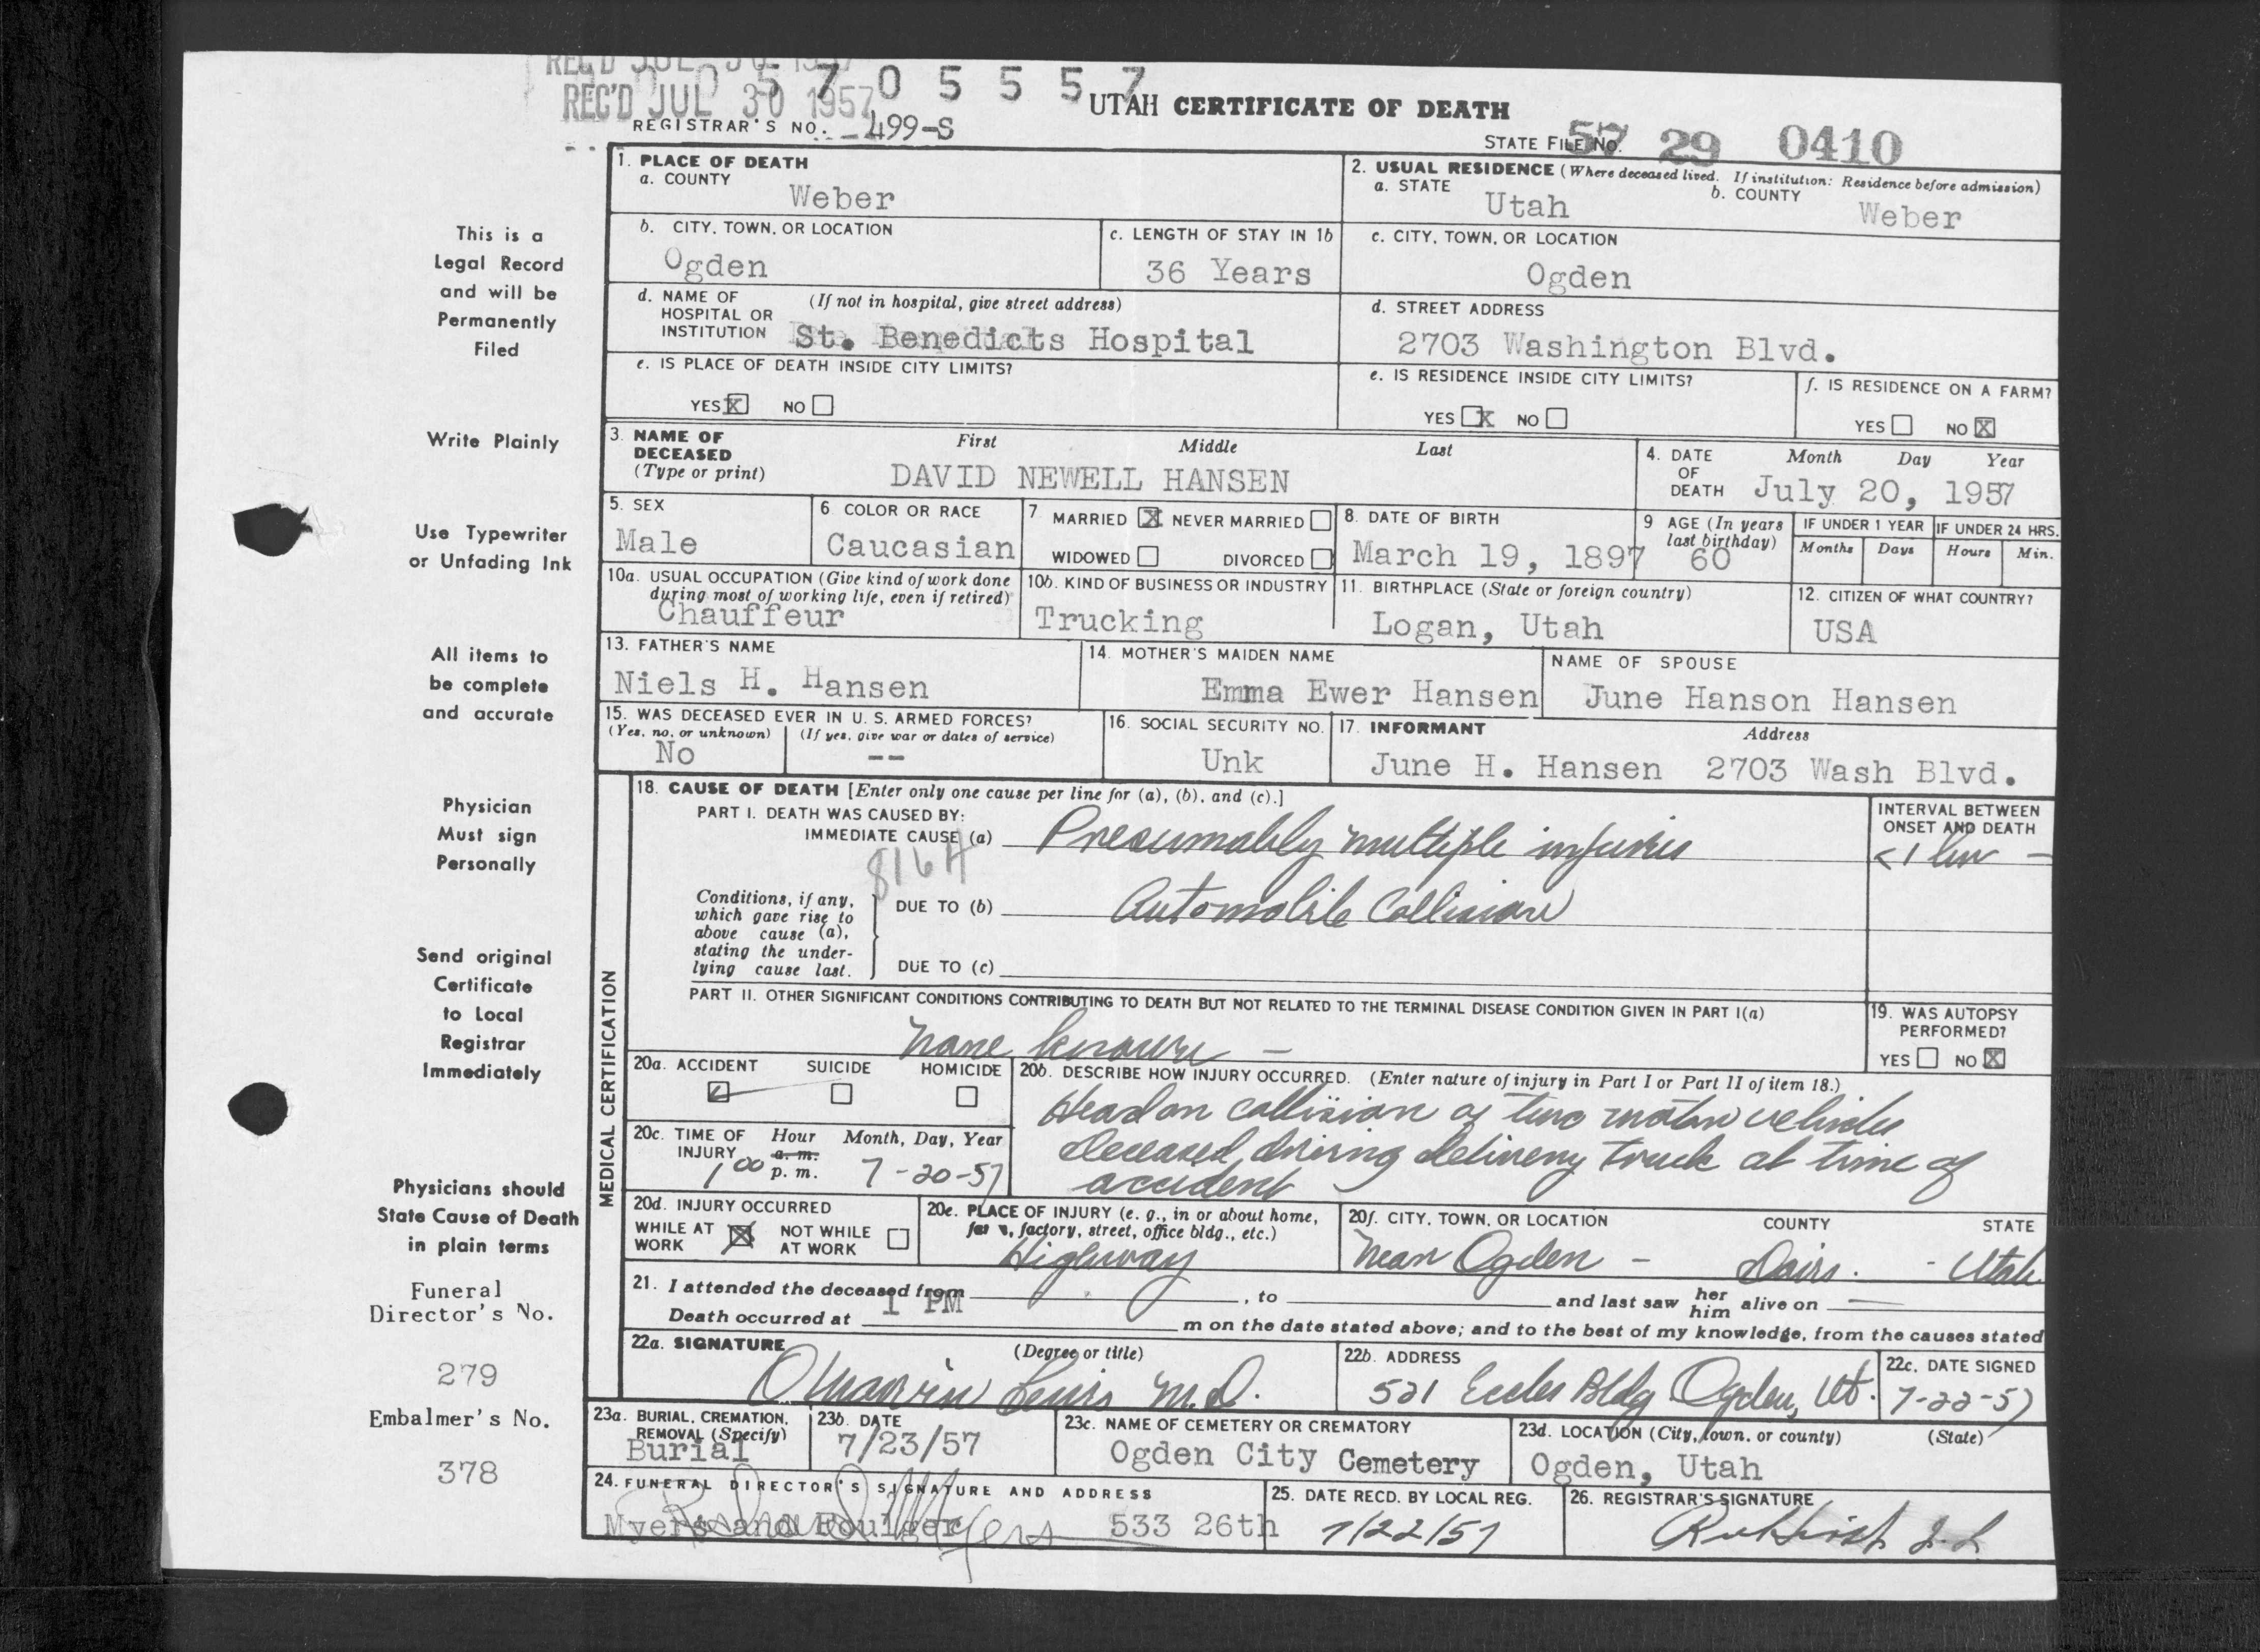 REC'D JUL 30 1957
5 7 0 5 5 5 7
REC'D JUL 30 1957
UTAH CERTIFICATE OF DEATH
REGISTRAR'S NO. 499-S
STATE FILE NO. 57 29 0410
1. PLACE OF DEATH
a. COUNTY
Weber
2. USUAL RESIDENCE (Where deceased lived. If institution: Residence before admission)
a. STATE
Utah
b. COUNTY
Weber
b. CITY, TOWN, OR LOCATION
Ogden
c. LENGTH OF STAY IN 1b
36 Years
c. CITY, TOWN, OR LOCATION
Ogden
d. NAME OF HOSPITAL OR INSTITUTION
(If not in hospital, give street address)
St. Benedicts Hospital
d. STREET ADDRESS
2703 Washington Blvd.
e. IS PLACE OF DEATH INSIDE CITY LIMITS?
YES X NO
e. IS RESIDENCE INSIDE CITY LIMITS?
YES X NO
f. IS RESIDENCE ON A FARM?
YES NO X
3. NAME OF DECEASED
(Type or print)
First Middle Last
DAVID NEWELL HANSEN
4. DATE OF DEATH
Month Day Year
July 20, 1957
5. SEX
Male
6. COLOR OR RACE
Caucasian
7 MARRIED X NEVER MARRIED
WIDOWED DIVORCED
8. DATE OF BIRTH
March 19, 1897
9 AGE (In years last birthday)
60
IF UNDER 1 YEAR
Months Days
IF UNDER 24 HRS.
Hours Min.
10a. USUAL OCCUPATION (Give kind of work done during most of working life, even if retired)
Chauffeur
10b. KIND OF BUSINESS OR INDUSTRY
Trucking
11. BIRTHPLACE (State or foreign country)
Logan, Utah
12. CITIZEN OF WHAT COUNTRY?
USA
13. FATHER'S NAME
Niels H. Hansen
14. MOTHER'S MAIDEN NAME
Emma Ewer Hansen
NAME OF SPOUSE
June Hanson Hansen
15. WAS DECEASED EVER IN U. S. ARMED FORCES?
(Yes, no, or unknown) (If yes, give war or dates of service)
No --
16. SOCIAL SECURITY NO.
Unk
17. INFORMANT Address
June H. Hansen 2703 Wash Blvd.
18. CAUSE OF DEATH [Enter only one cause per line for (a), (b), and (c).]
PART I. DEATH WAS CAUSED BY:
IMMEDIATE CAUSE (a) Presumably multiple injuries
INTERVAL BETWEEN ONSET AND DEATH
<1 hr -
816A
Conditions, if any, which gave rise to above cause (a), stating the underlying cause last.
DUE TO (b) Automobile Collision
DUE TO (c)
PART II. OTHER SIGNIFICANT CONDITIONS CONTRIBUTING TO DEATH BUT NOT RELATED TO THE TERMINAL DISEASE CONDITION GIVEN IN PART I(a)
None known -
19. WAS AUTOPSY PERFORMED?
YES NO X
20a. ACCIDENT SUICIDE HOMICIDE
20b. DESCRIBE HOW INJURY OCCURRED. (Enter nature of injury in Part I or Part II of item 18.)
Head on collision of two motor vehicles
deceased driving delivery truck at time of
accident
20c. TIME OF INJURY
Hour Month, Day, Year
a. m.
1 00 p. m. 7-20-57
20d. INJURY OCCURRED
WHILE AT WORK X NOT WHILE AT WORK
20e. PLACE OF INJURY (e. g., in or about home, farm, factory, street, office bldg., etc.)
Highway
20f. CITY, TOWN, OR LOCATION COUNTY STATE
Near Ogden - Davis. - Utah
21. I attended the deceased from , to and last saw her him alive on
Death occurred at 1 PM m on the date stated above; and to the best of my knowledge, from the causes stated
22a. SIGNATURE (Degree or title)
O Marvin Lewis M.D.
22b. ADDRESS
521 Eccles Bldg Ogden, Ut.
22c. DATE SIGNED
7-22-57
23a. BURIAL, CREMATION, REMOVAL (Specify)
Burial
23b. DATE
7/23/57
23c. NAME OF CEMETERY OR CREMATORY
Ogden City Cemetery
23d. LOCATION (City, town, or county) (State)
Ogden, Utah
24. FUNERAL DIRECTOR'S SIGNATURE AND ADDRESS
Myers and Foulger 533 26th
25. DATE RECD. BY LOCAL REG.
7/22/57
26. REGISTRAR'S SIGNATURE
MEDICAL CERTIFICATION
This is a
Legal Record
and will be
Permanently
Filed
Write Plainly
Use Typewriter
or Unfading Ink
All items to
be complete
and accurate
Physician
Must sign
Personally
Send original
Certificate
to Local
Registrar
Immediately
Physicians should
State Cause of Death
in plain terms
Funeral
Director's No.
279
Embalmer's No.
378